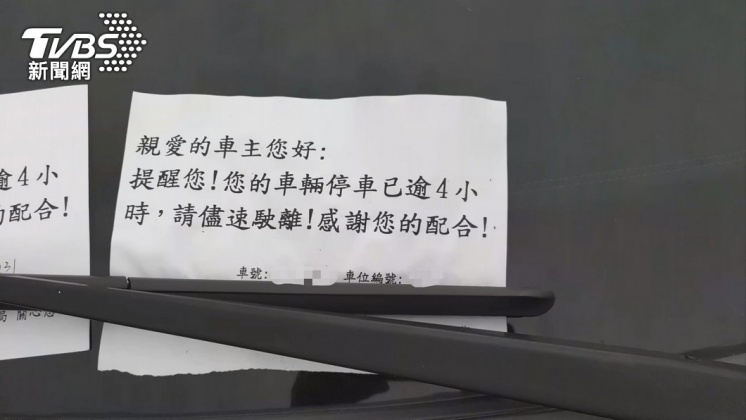 TVBS
新聞網
親愛的車主您好:
提醒您!您的車輛停車已逾4小
時,請儘速駛離!感謝您的配合!
車號: 車位編號:
逾4小
的配合!